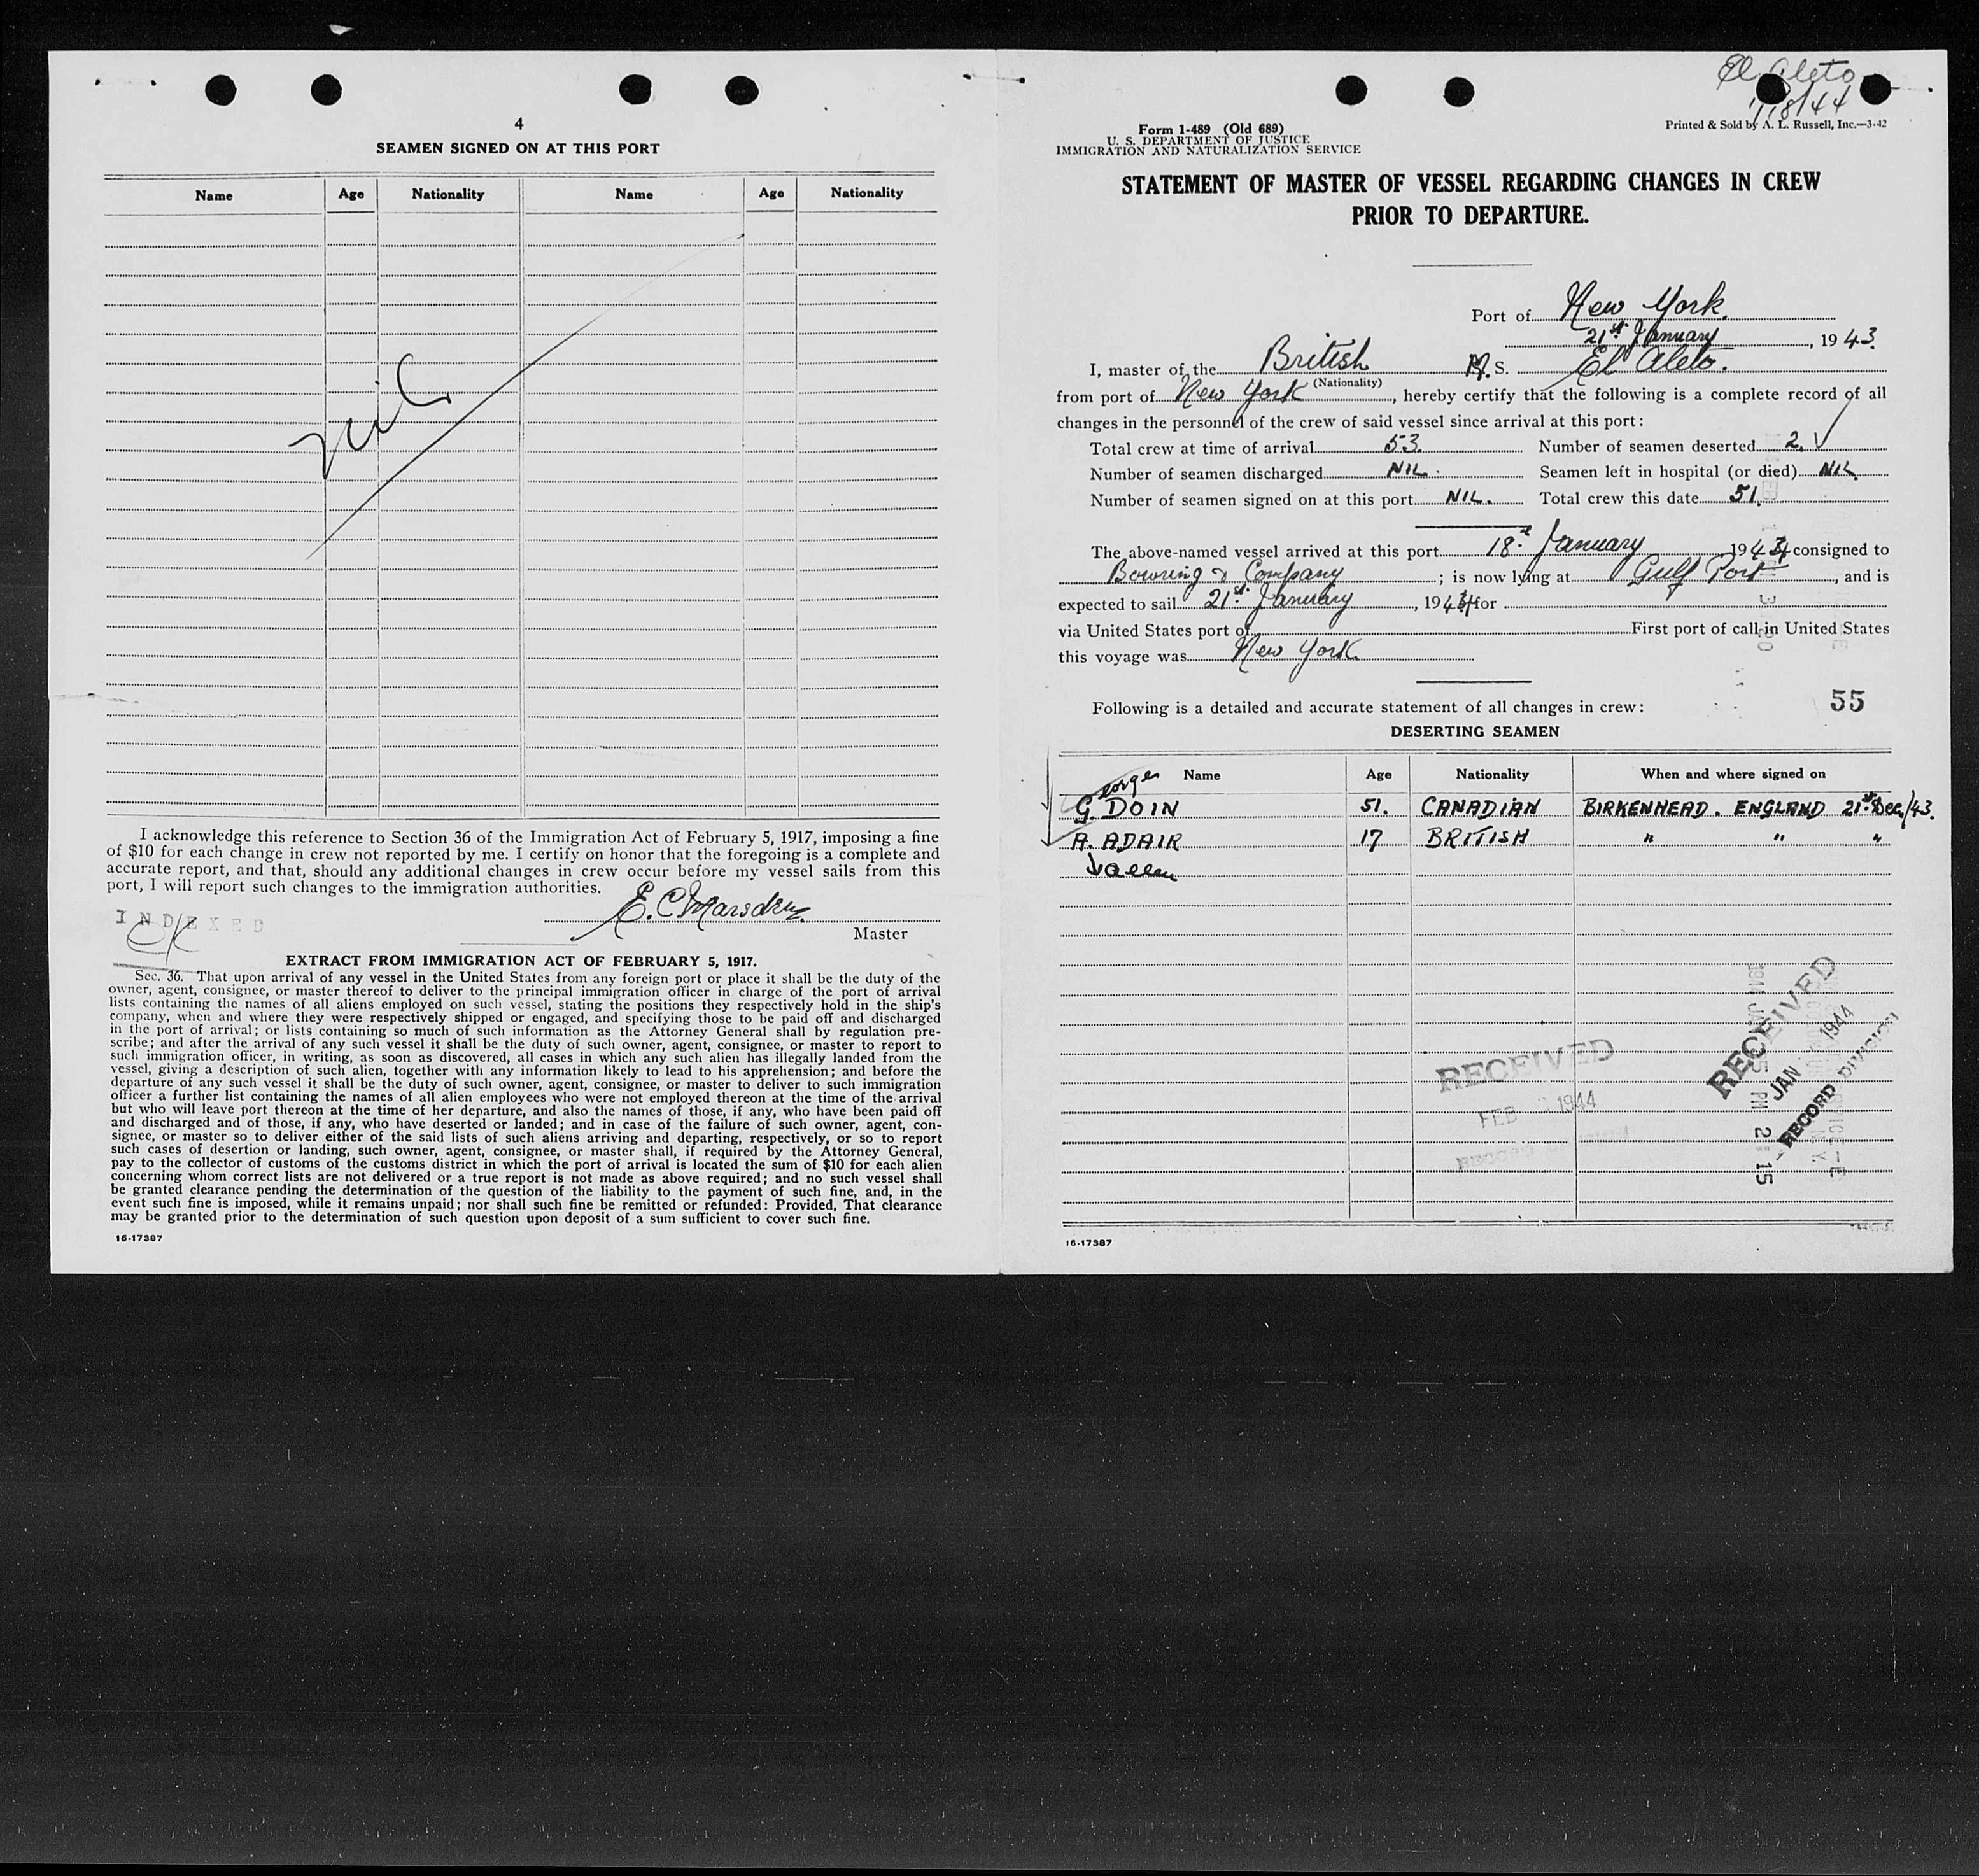 4
SEAMEN SIGNED ON AT THIS PORT
Name Age Nationality Name Age Nationality
Nil
I acknowledge this reference to Section 36 of the Immigration Act of February 5, 1917, imposing a fine
of $10 for each change in crew not reported by me. I certify on honor that the foregoing is a complete and
accurate report, and that, should any additional changes in crew occur before my vessel sails from this
port, I will report such changes to the immigration authorities.
INDEXED
E. C. Marsden
Master
EXTRACT FROM IMMIGRATION ACT OF FEBRUARY 5, 1917.
Sec. 36. That upon arrival of any vessel in the United States from any foreign port or place it shall be the duty of the
owner, agent, consignee, or master thereof to deliver to the principal immigration officer in charge of the port of arrival
lists containing the names of all aliens employed on such vessel, stating the positions they respectively hold in the ship's
company, when and where they were respectively shipped or engaged, and specifying those to be paid off and discharged
in the port of arrival; or lists containing so much of such information as the Attorney General shall by regulation pre-
scribe; and after the arrival of any such vessel it shall be the duty of such owner, agent, consignee, or master to report to
such immigration officer, in writing, as soon as discovered, all cases in which any such alien has illegally landed from the
vessel, giving a description of such alien, together with any information likely to lead to his apprehension; and before the
departure of any such vessel it shall be the duty of such owner, agent, consignee, or master to deliver to such immigration
officer a further list containing the names of all alien employees who were not employed thereon at the time of the arrival
but who will leave port thereon at the time of her departure, and also the names of those, if any, who have been paid off
and discharged and of those, if any, who have deserted or landed; and in case of the failure of such owner, agent, con-
signee, or master so to deliver either of the said lists of such aliens arriving and departing, respectively, or so to report
such cases of desertion or landing, such owner, agent, consignee, or master shall, if required by the Attorney General,
pay to the collector of customs of the customs district in which the port of arrival is located the sum of $10 for each alien
concerning whom correct lists are not delivered or a true report is not made as above required; and no such vessel shall
be granted clearance pending the determination of the question of the liability to the payment of such fine, and, in the
event such fine is imposed, while it remains unpaid; nor shall such fine be remitted or refunded: Provided, That clearance
may be granted prior to the determination of such question upon deposit of a sum sufficient to cover such fine.
16-17387
El Aleto
1/18/44
Form 1-489 (Old 689)
U. S. DEPARTMENT OF JUSTICE
IMMIGRATION AND NATURALIZATION SERVICE
Printed & Sold by A. L. Russell, Inc.—3-42
STATEMENT OF MASTER OF VESSEL REGARDING CHANGES IN CREW
PRIOR TO DEPARTURE.
Port of New York.
21st January, 1943.
I, master of the British M.S. El Aleto.
(Nationality)
from port of New York, hereby certify that the following is a complete record of all
changes in the personnel of the crew of said vessel since arrival at this port:
Total crew at time of arrival 53. Number of seamen deserted 2.
Number of seamen discharged NIL. Seamen left in hospital (or died) NIL
Number of seamen signed on at this port NIL. Total crew this date 51.
The above-named vessel arrived at this port 18th January 1944 consigned to
Bowring & Company; is now lying at Gulf Port, and is
expected to sail 21st January, 1944 for
via United States port of First port of call in United States
this voyage was New York
55
Following is a detailed and accurate statement of all changes in crew:
DESERTING SEAMEN
Name Age Nationality When and where signed on
George
G. DOIN 51. CANADIAN BIRKENHEAD. ENGLAND 21st Dec/43.
A. ADAIR 17 BRITISH " " "
RECEIVED
FEB 1944
RECEIVED
JAN 1944
RECORD DIVISION
1944 JAN 25 PM 2:15
16-17387